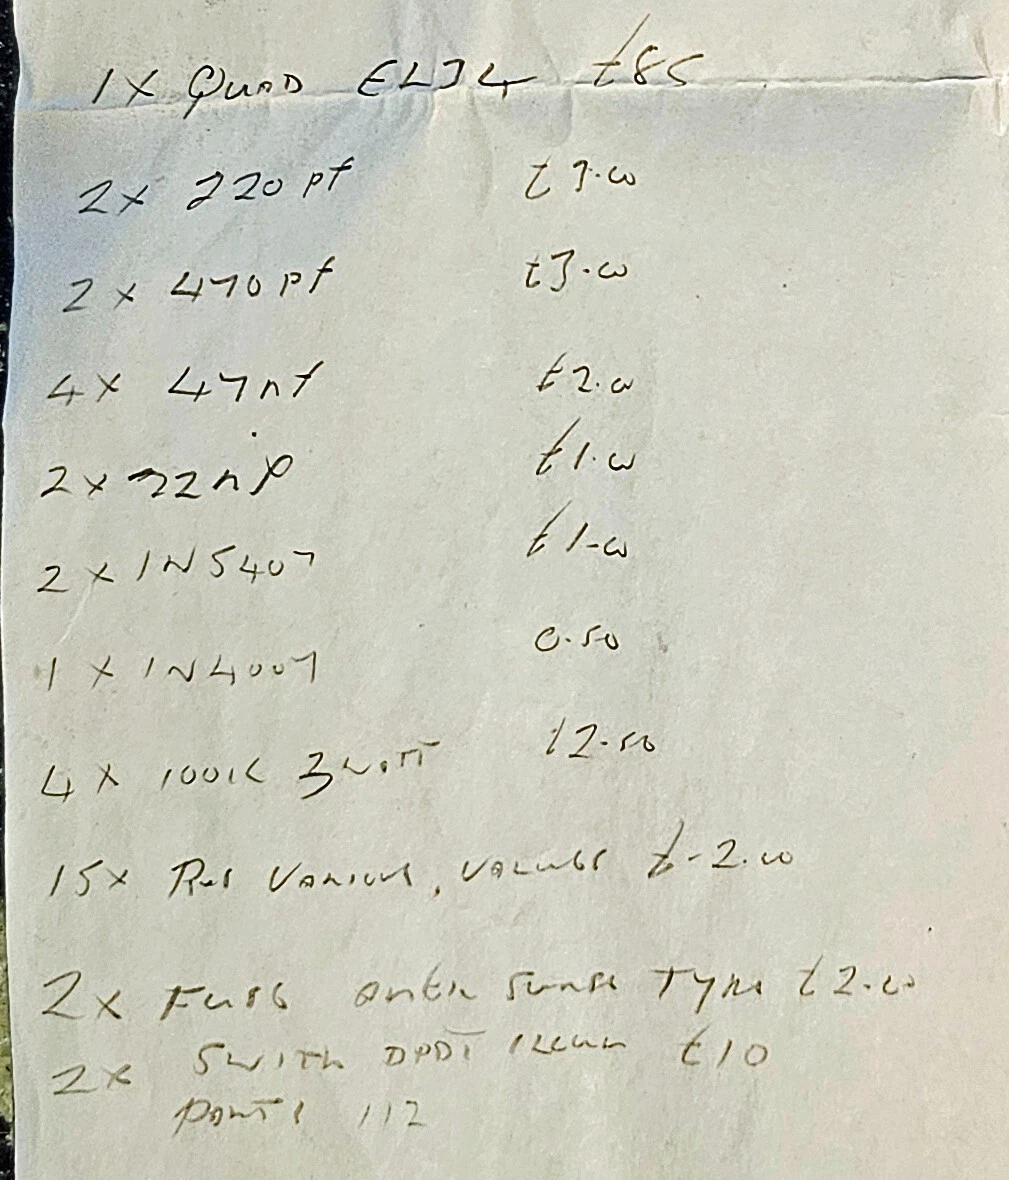 1 X QUAD EL34 £85
2 x 220 pf £3.00
2 x 470 pf £3.00
4 x 47nf £2.00
2 x 22nf £1.00
2 x 1N5407 £1-00
1 x 1N4007 0.50
4 x 100K 3 watt £2.50
15x Res Various, values £-2.00
2x Fuse surge Type £2.00
2x Swith DPDT £10
Parts 112